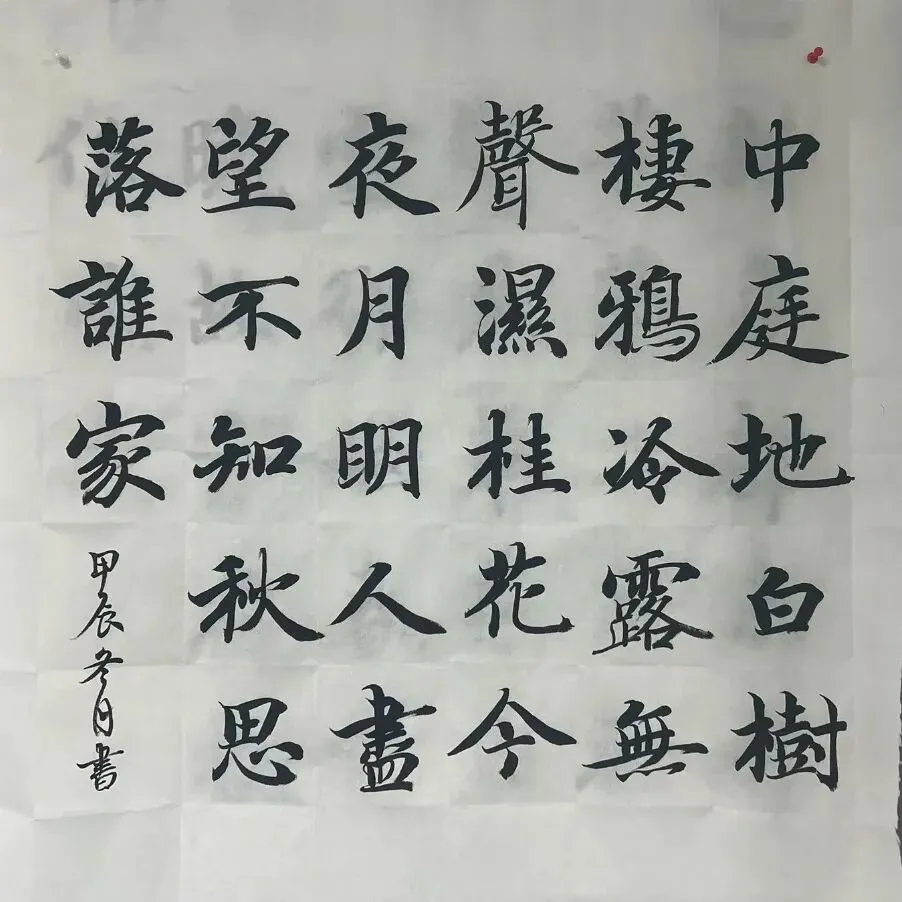 中庭地白樹
棲鴉冷露無
聲濕桂花今
夜月明人盡
望不知秋思
落誰家
甲辰冬月書